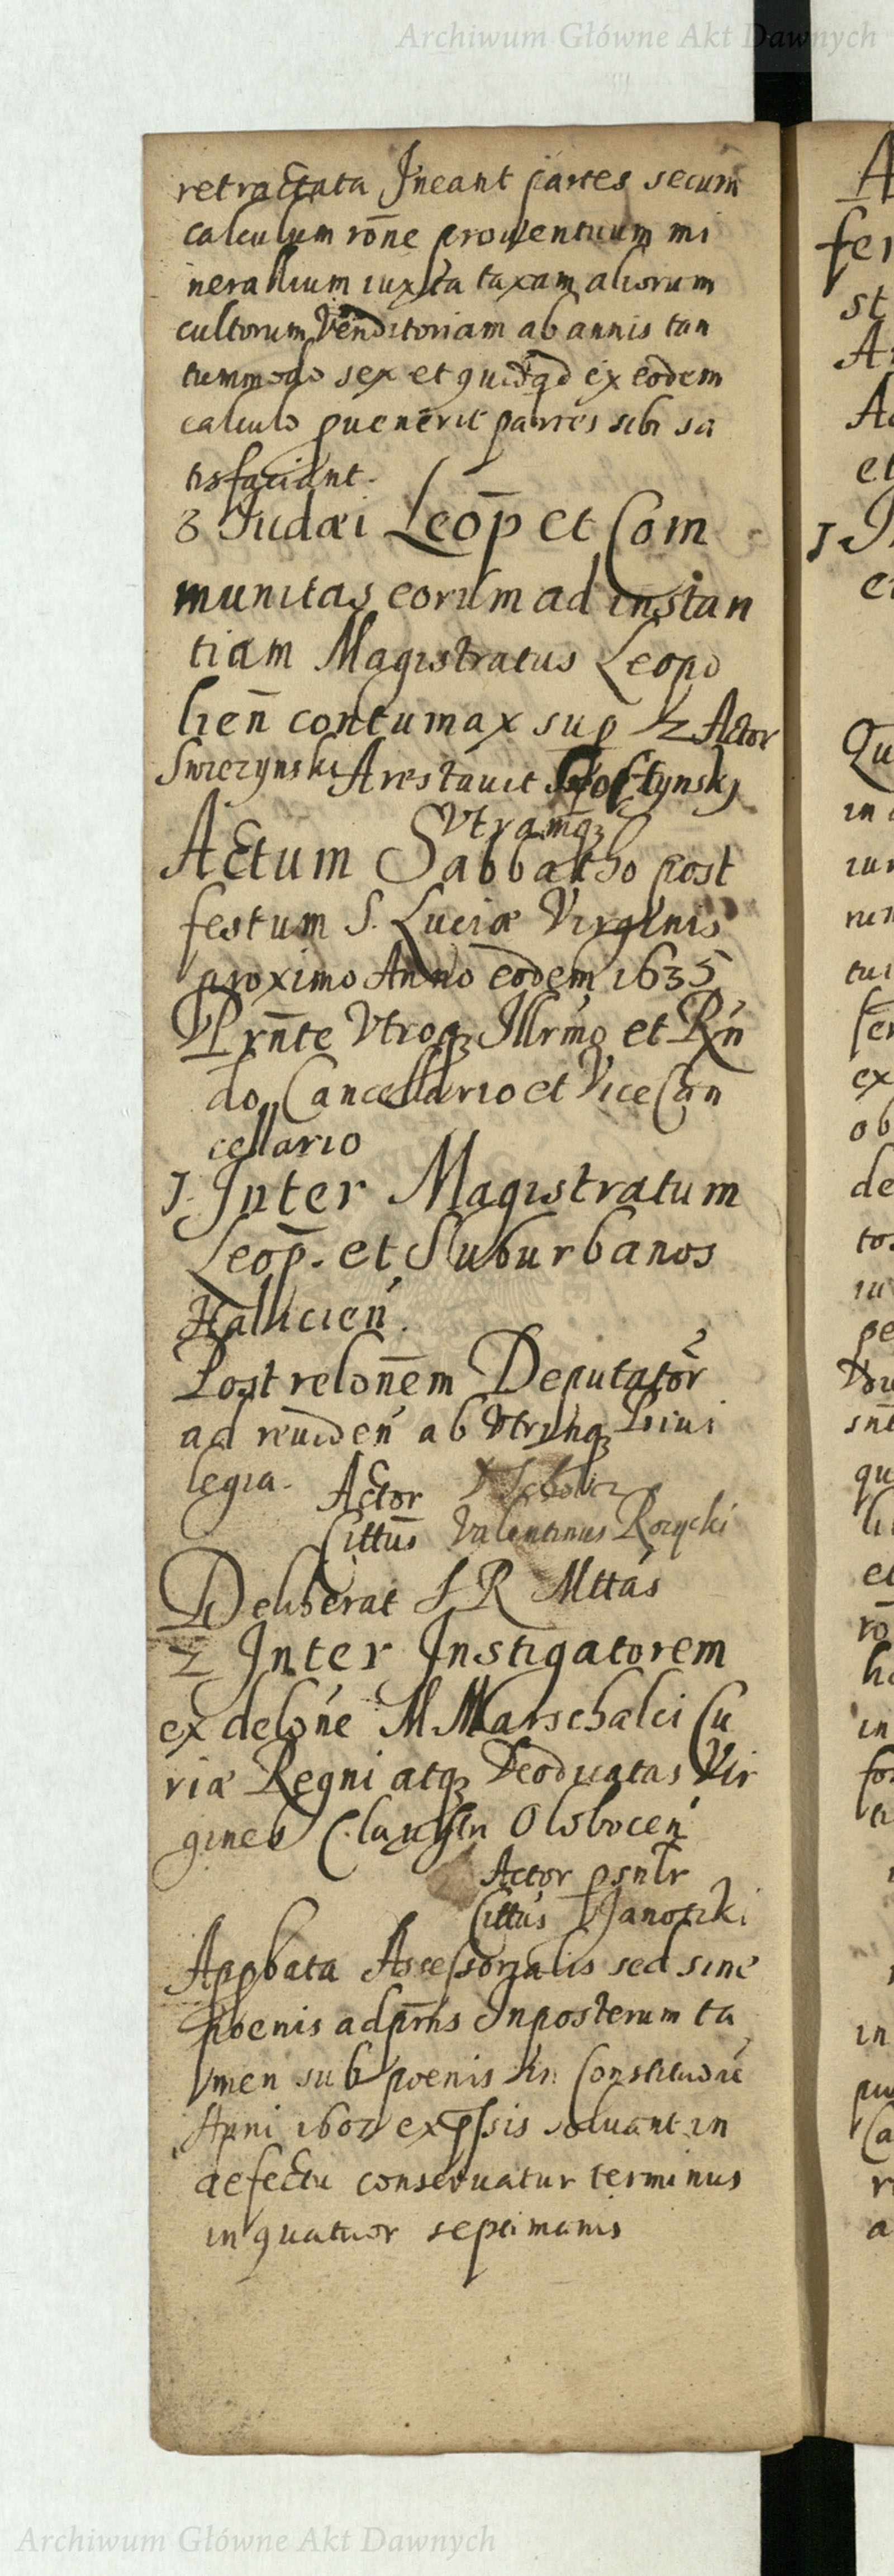 Archiwum Główne Akt Dawnych
retractata Ineant partes secum
calculum rōne prouentuum mi
nerallium iuxta taxam aliorum
cultorum Venditoriam ab annis tan
tummodo sex et quidqd ex eodem
calculo puenerit partes sibi sa
tisfaciant.
3 Judæi Leop̄ et Com
munitas eorum ad instan
tiam Magistratus Leopo
lien̄ contumax sup 2 Actor
Swiezynski Arestauit
Vtramqз
Actum Sabbatho post
festum S. Luciæ Virginis
proximo Anno eodem 1635
Prn̄te Vtroqз Illrmo et Rn
do Cancellario et ViceCan
cellario
1. Inter Magistratum
Leop̄. et Suburbanos
Hallicień.
Post relonēm Deputator
ad reuiden ab Vtrinqз Priui
legia. Actor
Cittus Valentinus Rozycki
Deliberat S R Mttas
2 Inter Instigatorem
ex delone M Marschalci Cu
riæ Regni atqз Deo dicatas Vir
gines Claustri Olobocen
Actor psnlr
Cittus Janotzki
Appbata Assessorialis sed sine
poenis ad prns Inposterum ta
men sub poenis in Constitudne
Anni 1607 expssis soluant in
defectu conseruatur terminus
in quatuor septimanis
Archiwum Główne Akt Dawnych